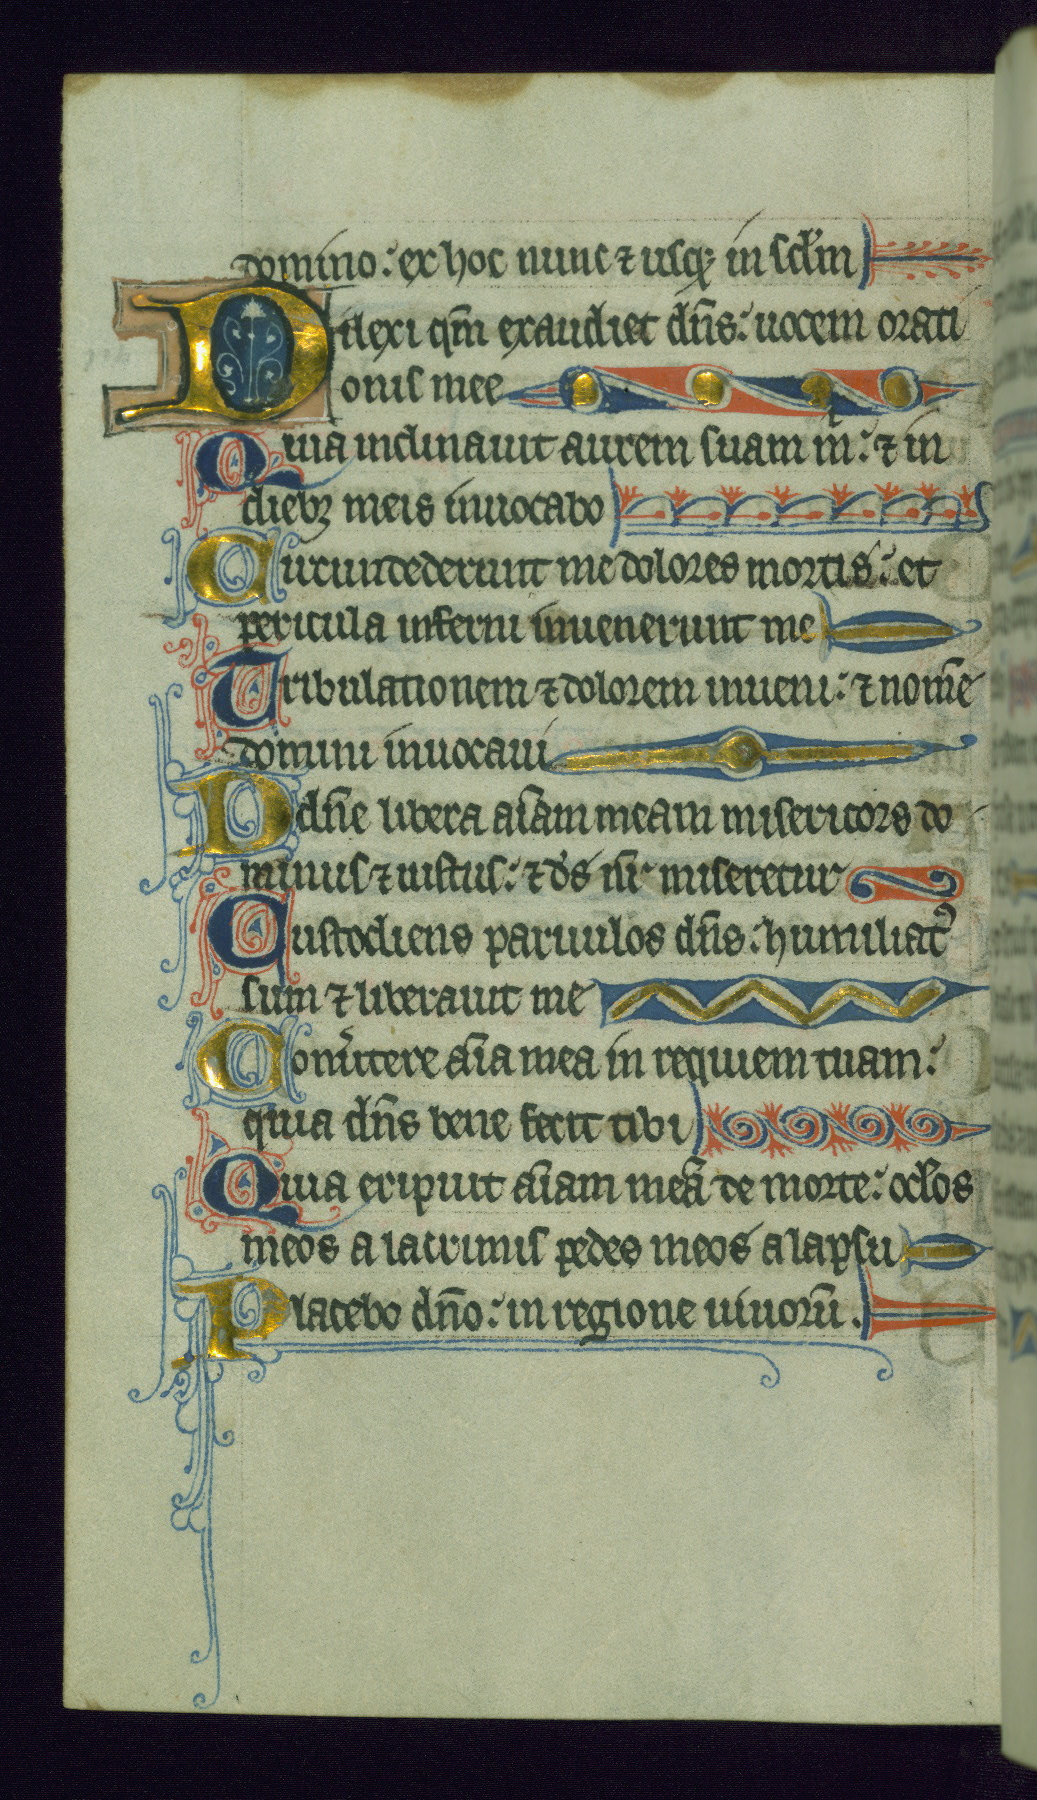 domino: ex hoc nunc ⁊ usq; in sc̄lm
Dilexi qm̄ exaudiet dn̄s: uocem orati
onis mee
Quia inclinauit aurem suam m̄: ⁊ in
dieb; meis inuocabo
Circundederunt me dolores mortis: et
pericula inferni inuenerunt me
Tribulationem ⁊ dolorem inueni: ⁊ nom̄e
domini inuocaui
O dn̄e libera ai̅am meam misericors do
minus ⁊ iustus: ⁊ ds̄ nr̄ miseretur
Custodiens paruulos dn̄s: humiliat᾽
sum ⁊ liberauit me
Conu̅tere ai̅a mea in requiem tuam:
quia dn̄s bene fecit tibi
Quia eripuit ai̅am meā de morte: oc̄los
meos a lacrimis pedes meos a lapsu
Placebo dn̄o: in regione uiuorū.